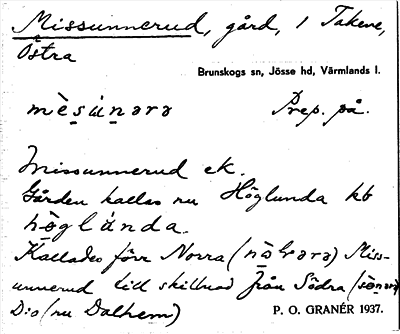 Missunnerud, gård, i Takene,
Östra
Brunskogs sn, Jösse hd, Värmlands l.
mèsúnərə Prep. på.
Missunnerud ek.
Gården kallas nu Höglunda kb
hø̀glúnda.
Kallades förr Norra (nò̱rərə) Miss-
unnerud till skillnad från Södra
D:o (nu Dalhem) P. O. GRANÉR 1937.